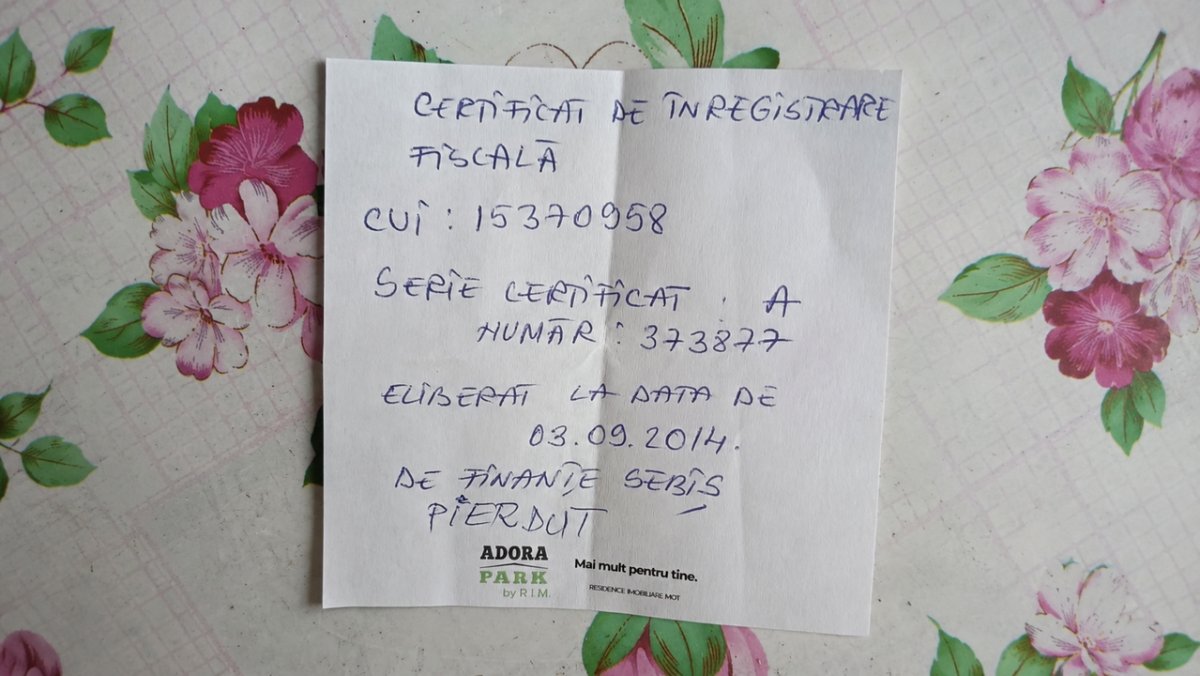 CERTIFICAT DE ÎNREGISTRARE
FISCALĂ
CUI : 15370958
SERIE CERTIFICAT : A
NUMĂR : 373877
ELIBERAT LA DATA DE
03.09.2014.
DE FINANȚE SEBIȘ
PIERDUT
ADORA
PARK
by R.I.M.
Mai mult pentru tine.
RESIDENCE IMOBILIARE MOT